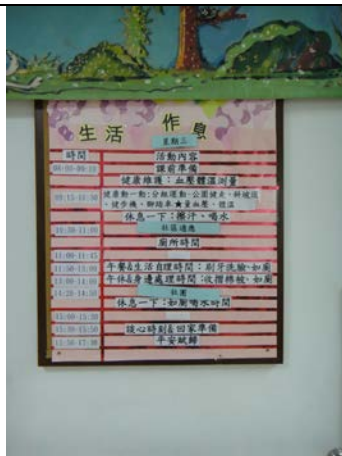 生活作息
星期三
時間 活動內容
課前準備
健康維護：血壓體溫測量
健康動一動：分組運動-公園健走、斜坡板
、健步機、腳踏車★量血壓、體溫
休息一下：擦汗、喝水
10:30-11:00 社區適應
廁所時間
11:00-11:45
11:50-13:00 午餐&生活自理時間：刷牙洗臉、如廁
13:00-14:10 午休&身邊處理時間：收摺棉被、如廁
14:20-14:50 社團
休息一下：如廁喝水時間
15:00-15:30
15:30-15:50 談心時刻&回家準備
平安賦歸